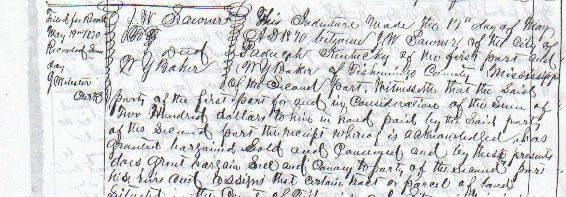 Filed for Record
May 19th 1870
Recorded Same
day
J W Sawner
To Deed
W Y Baker
This Indenture made the 17th day of May
A D 1870 between J W Sawner of the City of
Paducah Kentucky of the first part and
W Y Baker of Tishomingo County Mississippi
of the Second part Witnesseth that the Said
party of the first part for and in Consideration of the Sum of
Two Hundred dollars to him in hand paid by the Said party
of the Second part the receipt whereof is acknowledged has
granted bargained Sold and Conveyed and by these presents
does Grant bargain Sell and Convey to party of the Second part
his heirs and assigns that certain tract or parcel of land
Situated in the County of